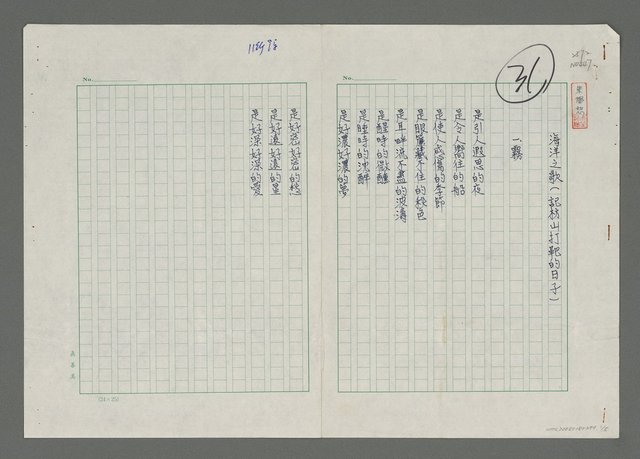 31
No.
海洋之歌(記枋山打靶的日子)
一、霧
是引人遐思的夜
是令人嚮往的船
是使人感傷的季節
是眼簾藏不住的綠色
是耳畔流不盡的波濤
是醒時的微醺
是睡時的沈醉
是好濃好濃的夢
No.
是好密好密的愁
是好遠好遠的星
是好深好深的愛
(24×25)